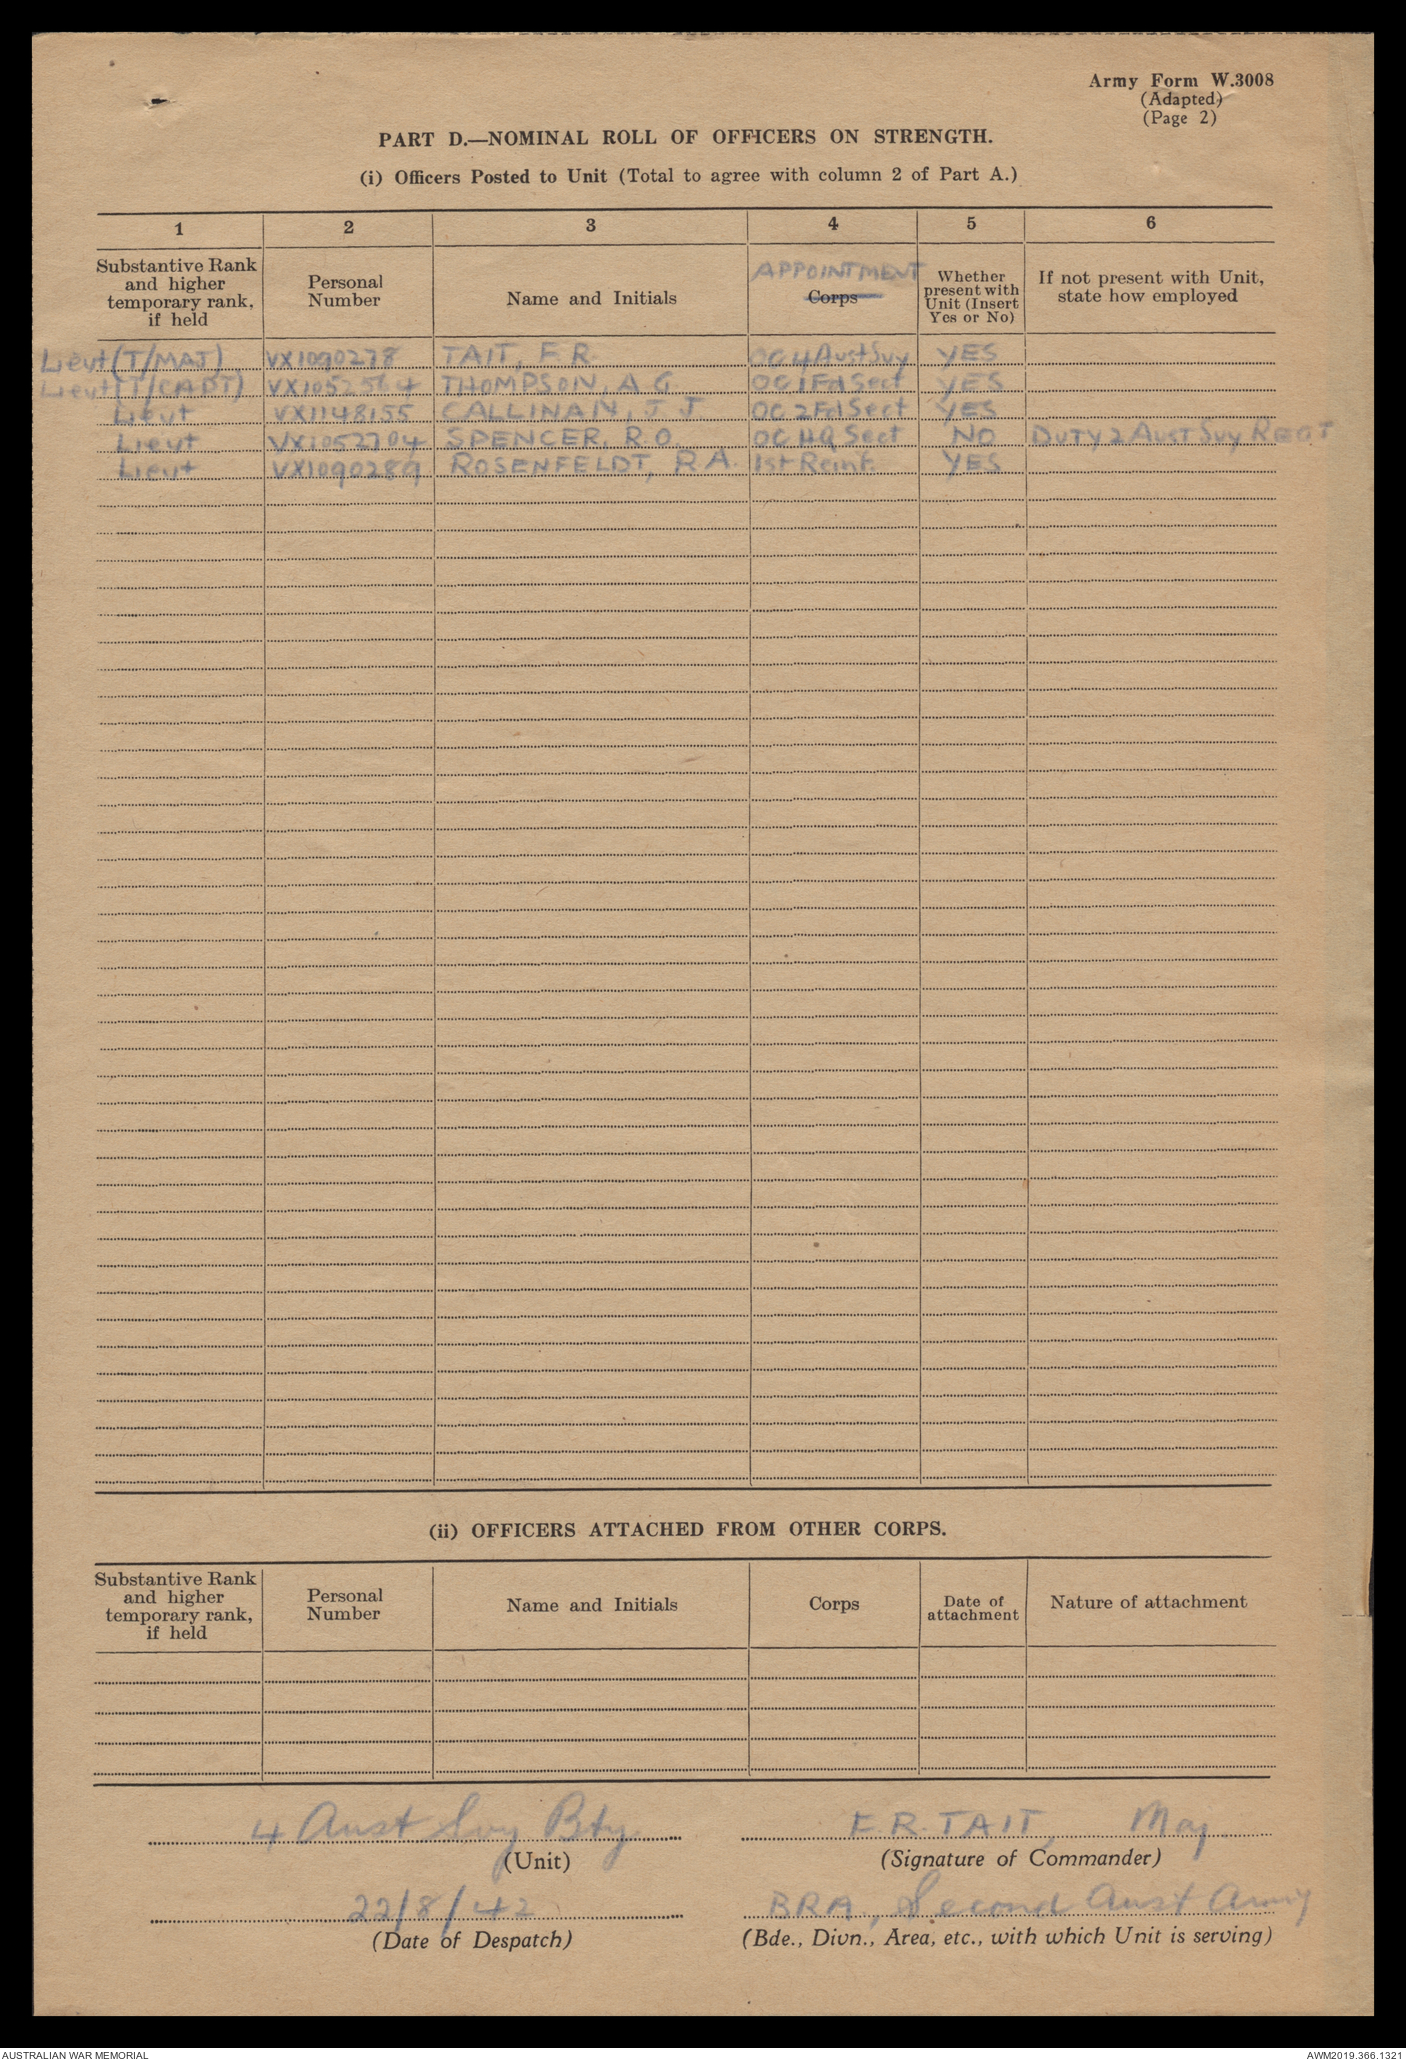 Army Form W.3008
(Adapted)
(Page 2)
PART D.—NOMINAL ROLL OF OFFICERS ON STRENGTH.
(i) Officers Posted to Unit (Total to agree with column 2 of Part A.)
1 2 3 4 5 6
Substantive Rank and higher temporary rank, if held
Personal Number
Name and Initials
APPOINTMENT
Corps
Whether present with Unit (Insert Yes or No)
If not present with Unit, state how employed
Lieut (T/MAJ) VX109027B TAIT, F.R. OC 4 Aust Svy YES
Lieut (T/CAPT) VX1052564 THOMPSON, A G OC 1 Fd Sect YES
Lieut VX1148155 CALLINAN, J J OC 2 Fd Sect YES
Lieut VX1052704 SPENCER, R.O. OC HQ Sect NO DUTY 2 AUST Svy REGT
Lieut VX1090289 ROSENFELDT, R A 1st Reinf. YES
(ii) OFFICERS ATTACHED FROM OTHER CORPS.
Substantive Rank and higher temporary rank, if held
Personal Number
Name and Initials
Corps
Date of attachment
Nature of attachment
4 Aust Svy Bty
(Unit)
F.R. TAIT, Maj
(Signature of Commander)
22/8/42
(Date of Despatch)
BRA, Second Aust Army
(Bde., Divn., Area, etc., with which Unit is serving)
AUSTRALIAN WAR MEMORIAL
AWM2019.366.1321